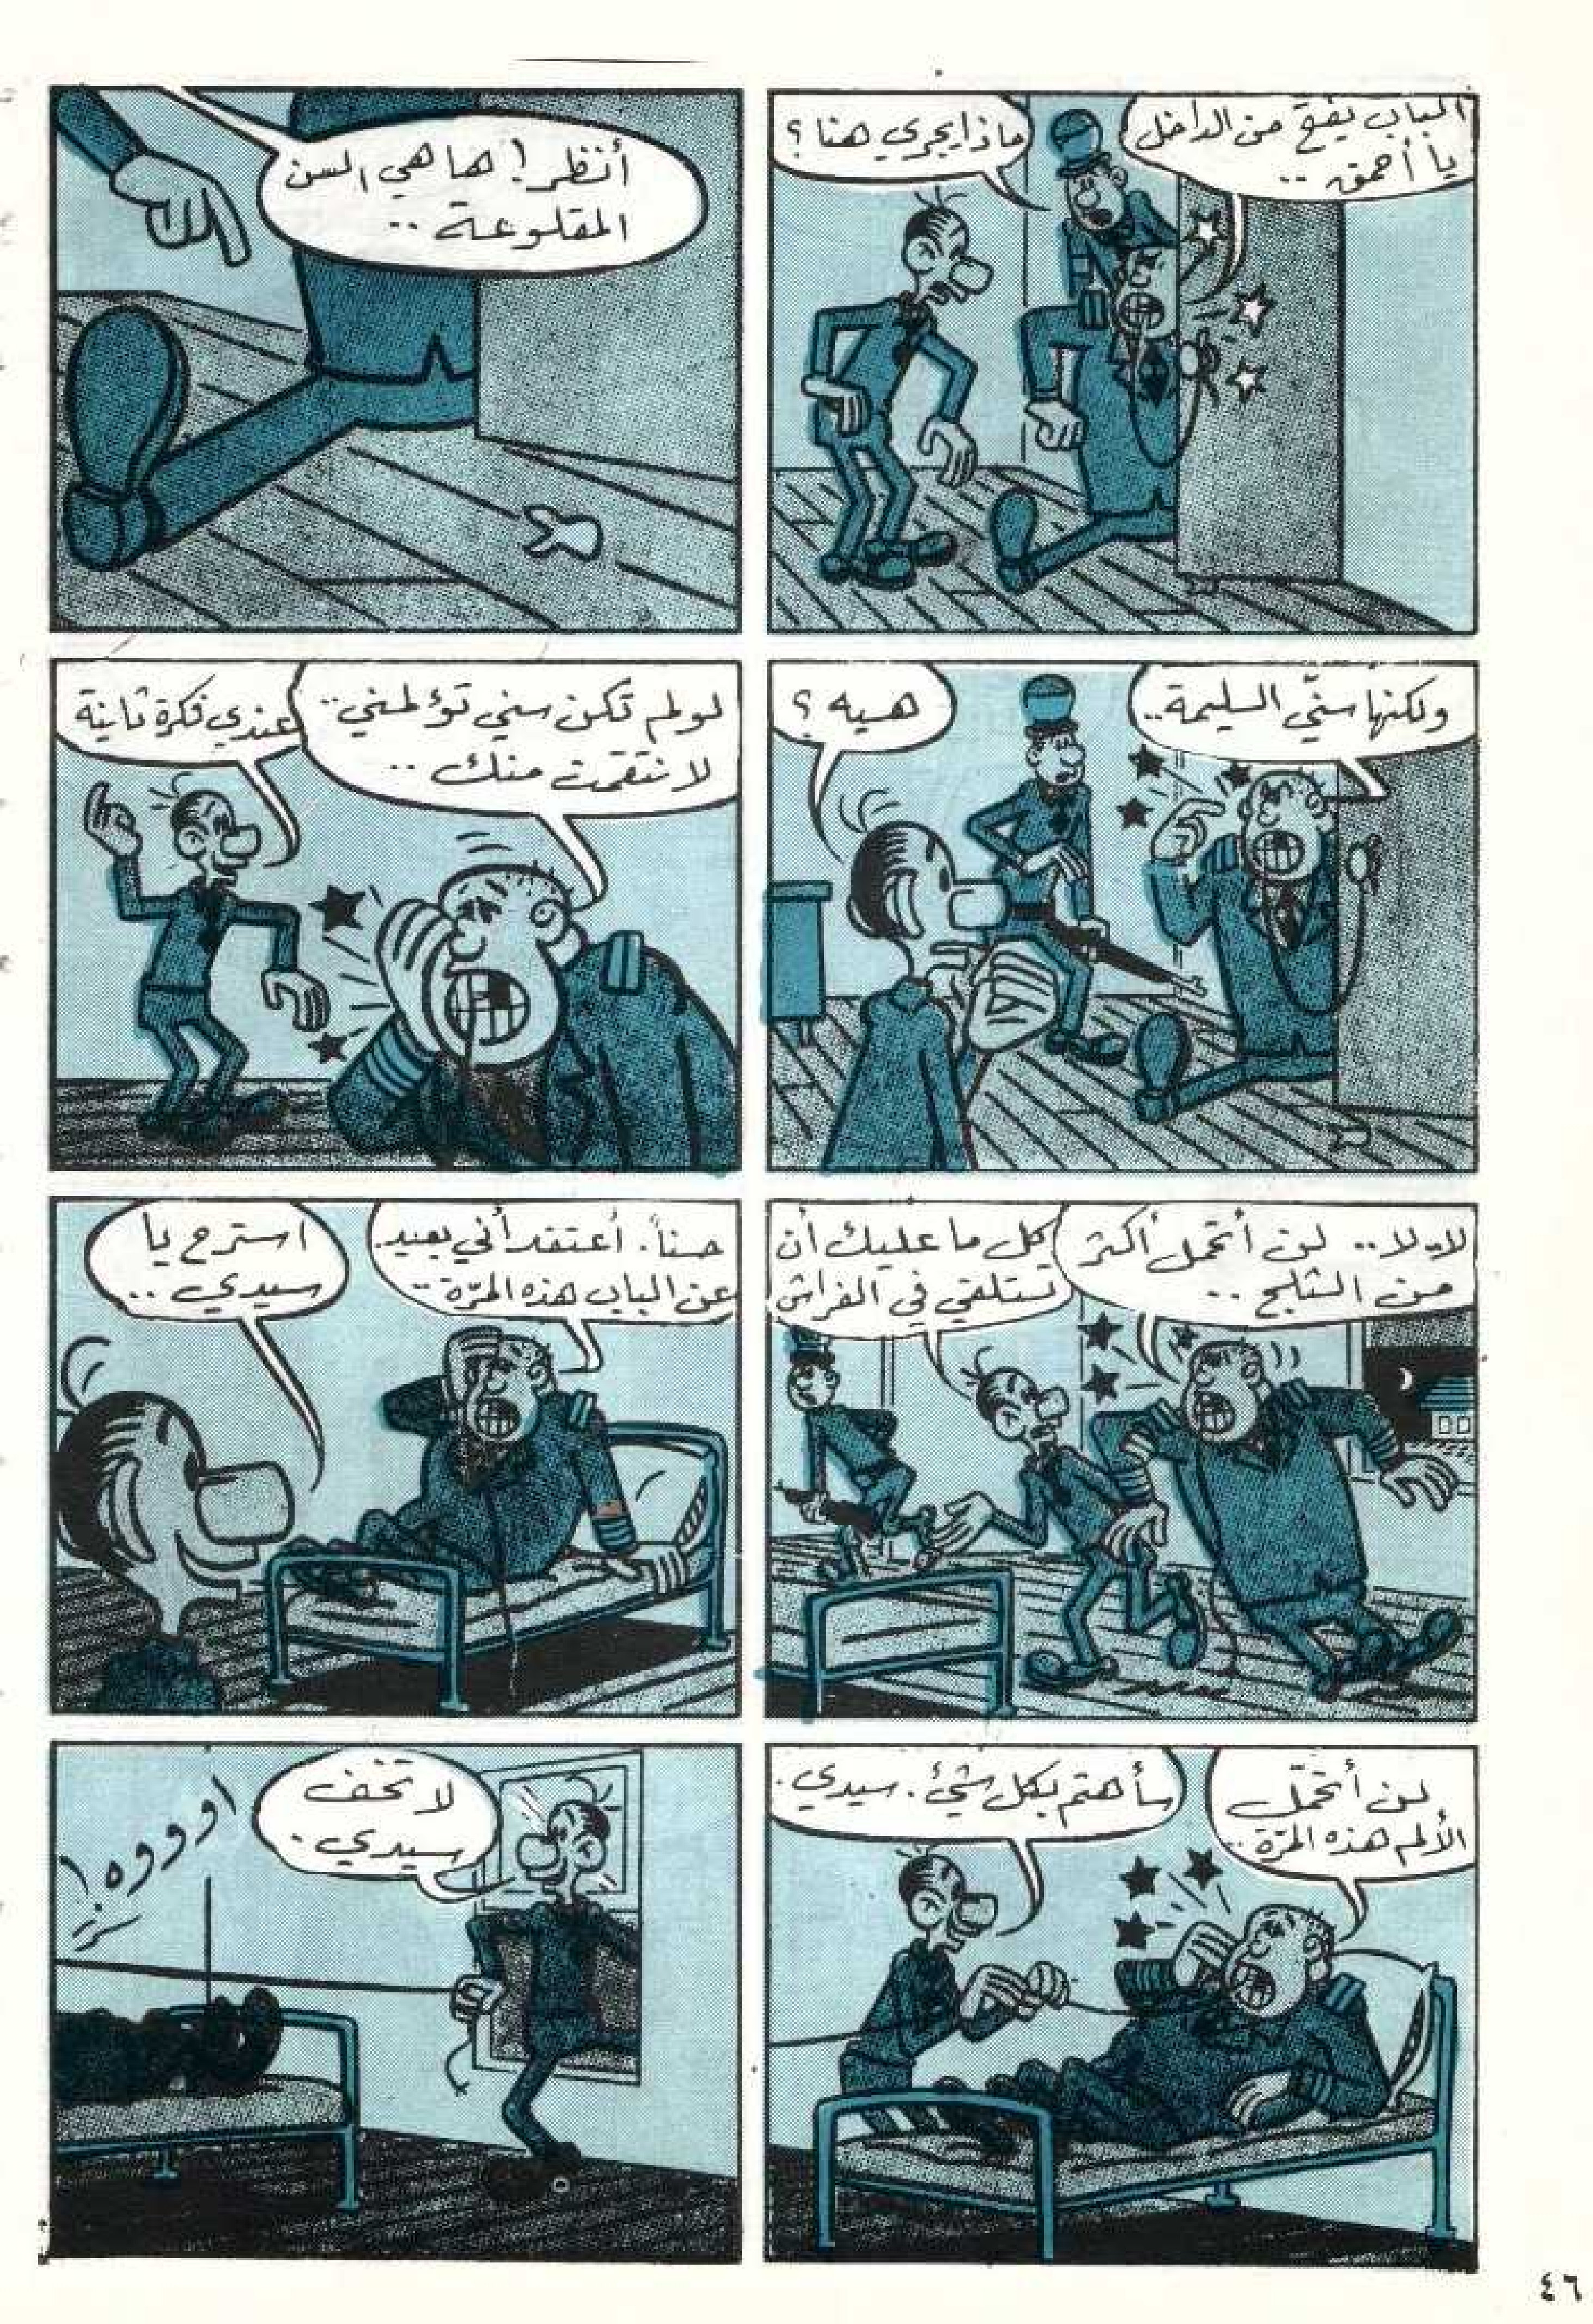 الباب يفتح من الداخل
يا أحمق ..
ماذا يجري هنا ؟
أنظر ! ها هي السن
المقلوعة ..
ولكنها سنّي السليمة ..
هيه ؟
لو لم تكن سني تؤلمني ..
لانتقمت منك ..
عندي فكرة ثانية
لا .. لا .. لن أتحمل أكثر
من الثلج ..
كل ما عليك أن
تستلقي في الفراش
حسناً . أعتقد أني بعيد
عن الباب هذه المرّة ..
استرح يا
سيدي ..
لن أتحمّل
الألم هذه المرّة ..
سأهتم بكل شيئ . سيدي .
لا تخف
سيدي .
اوووه !
٤٦